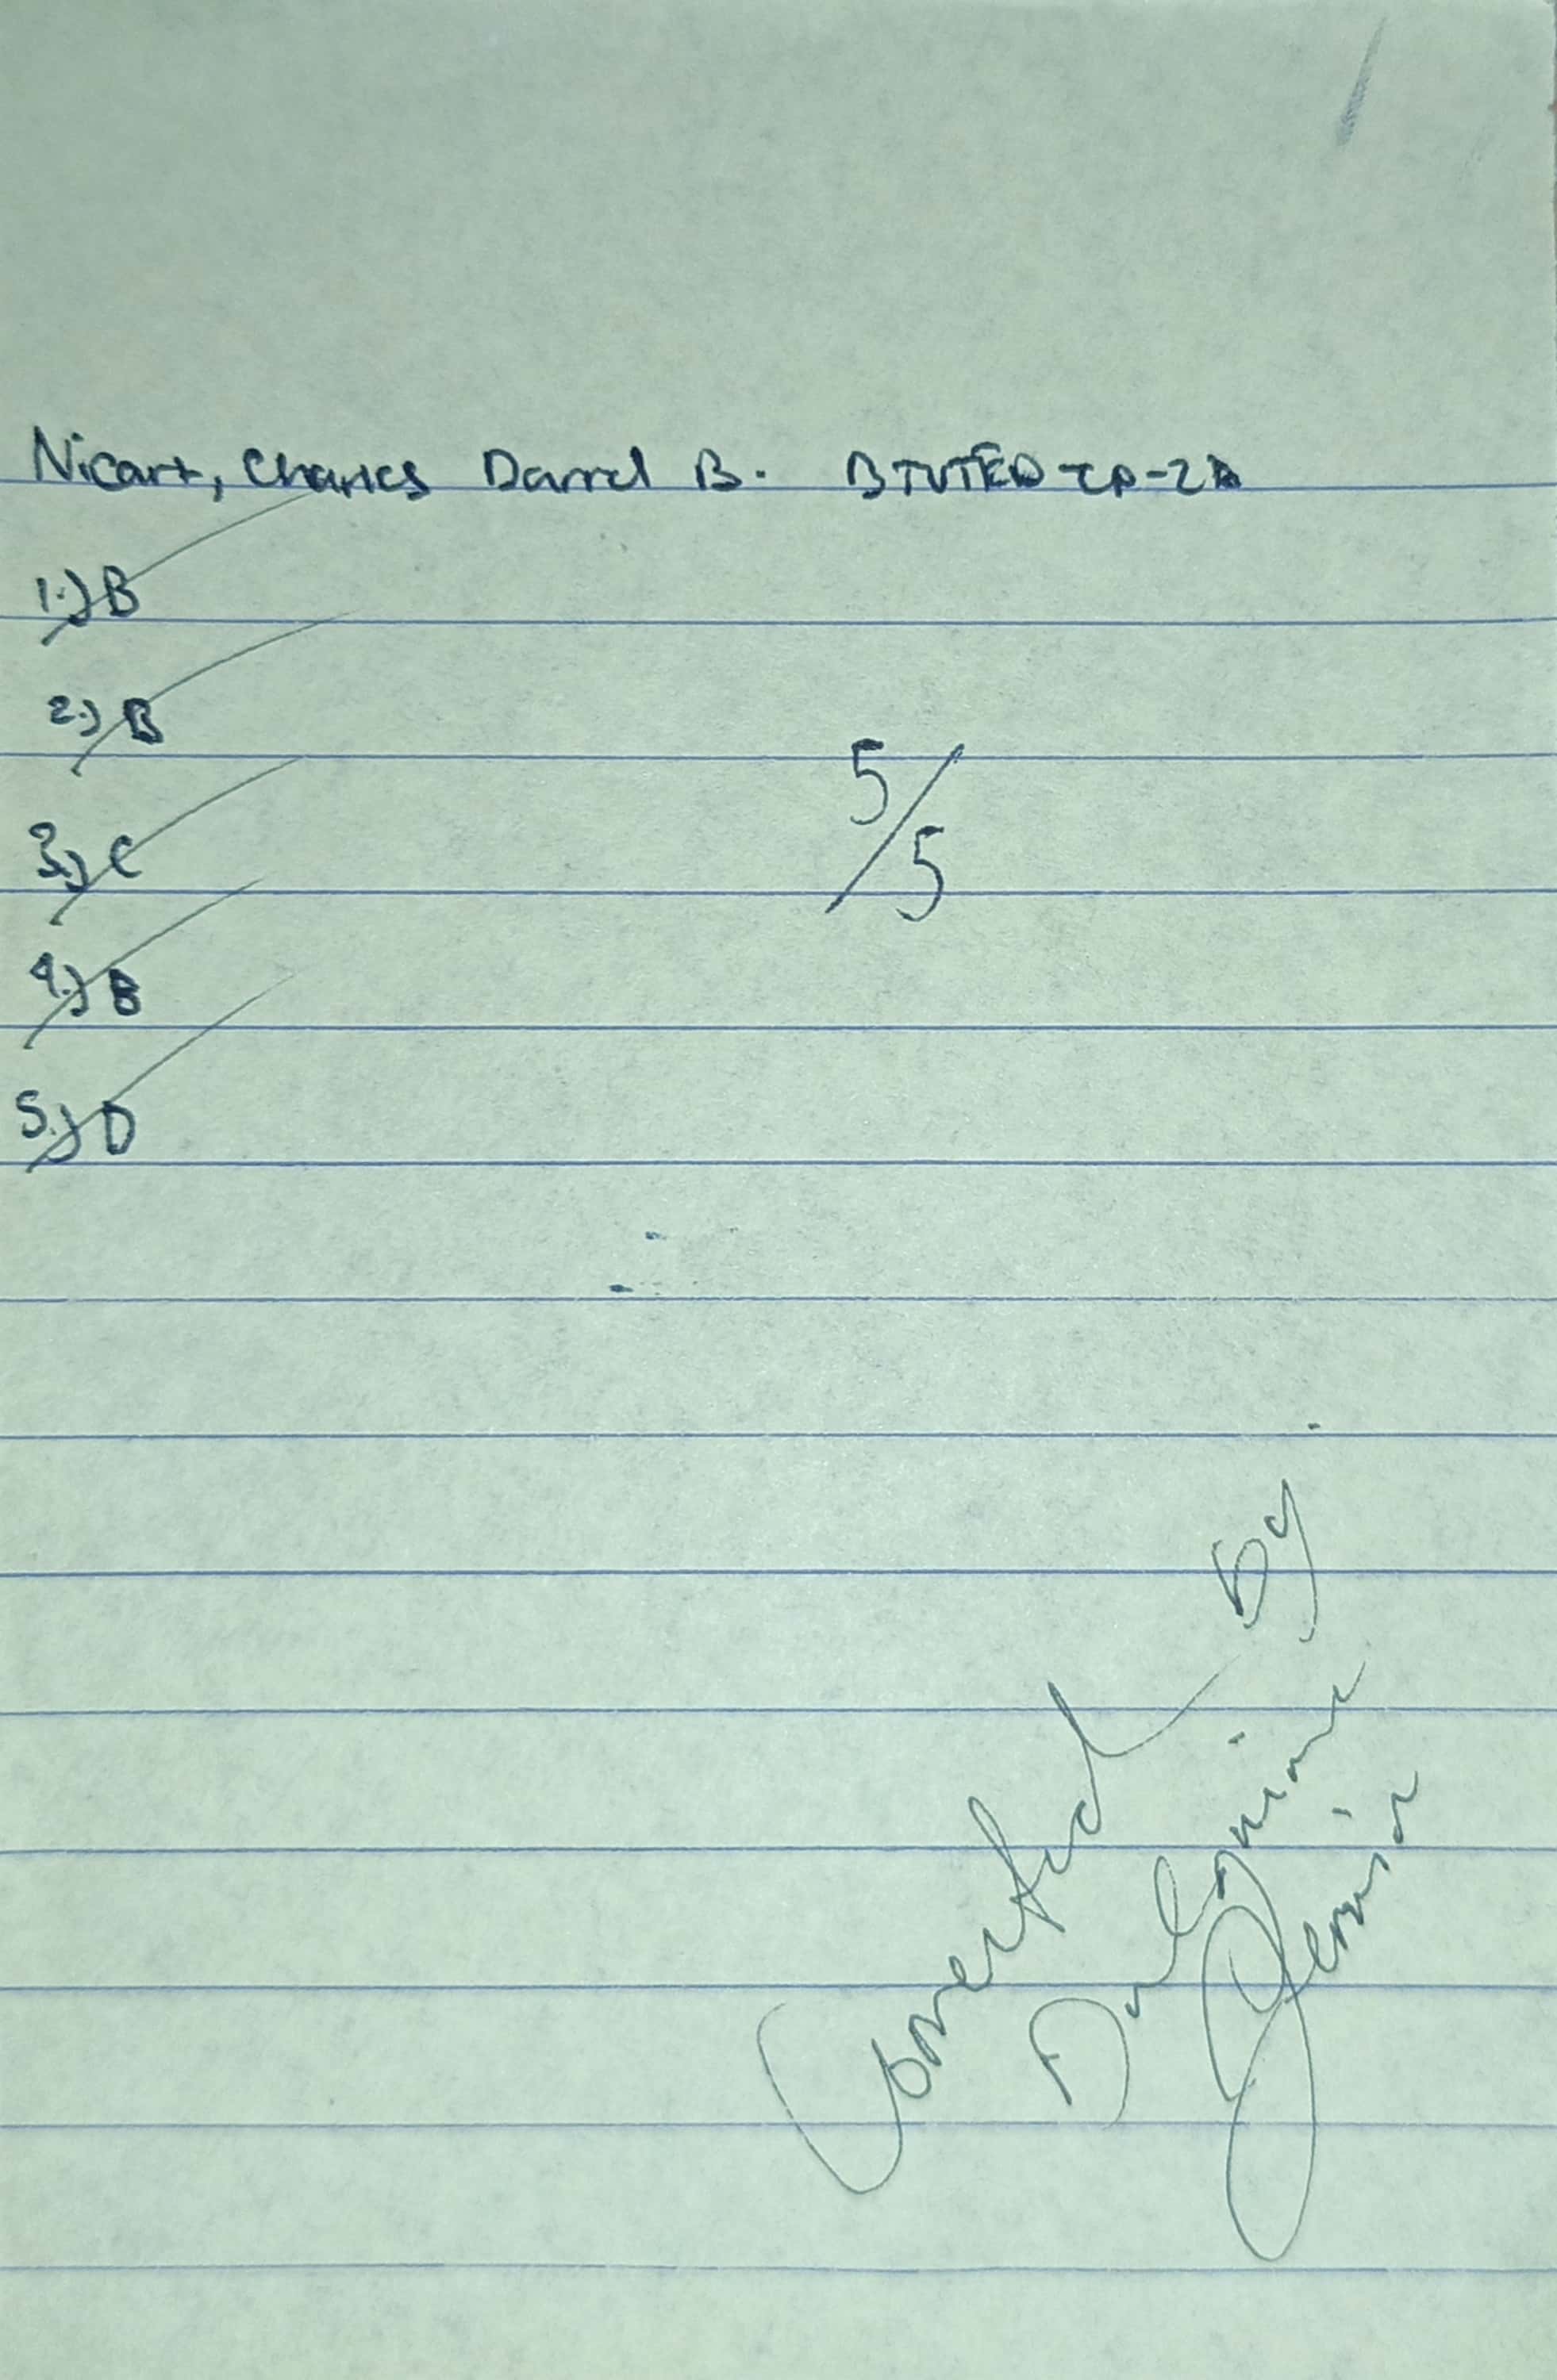 Nicart, Charles Darrel B. BTVTED-CP-2A
1.) B
2.) B
3.) C
4.) B
5.) D
5/5
Corrected by
Jervin